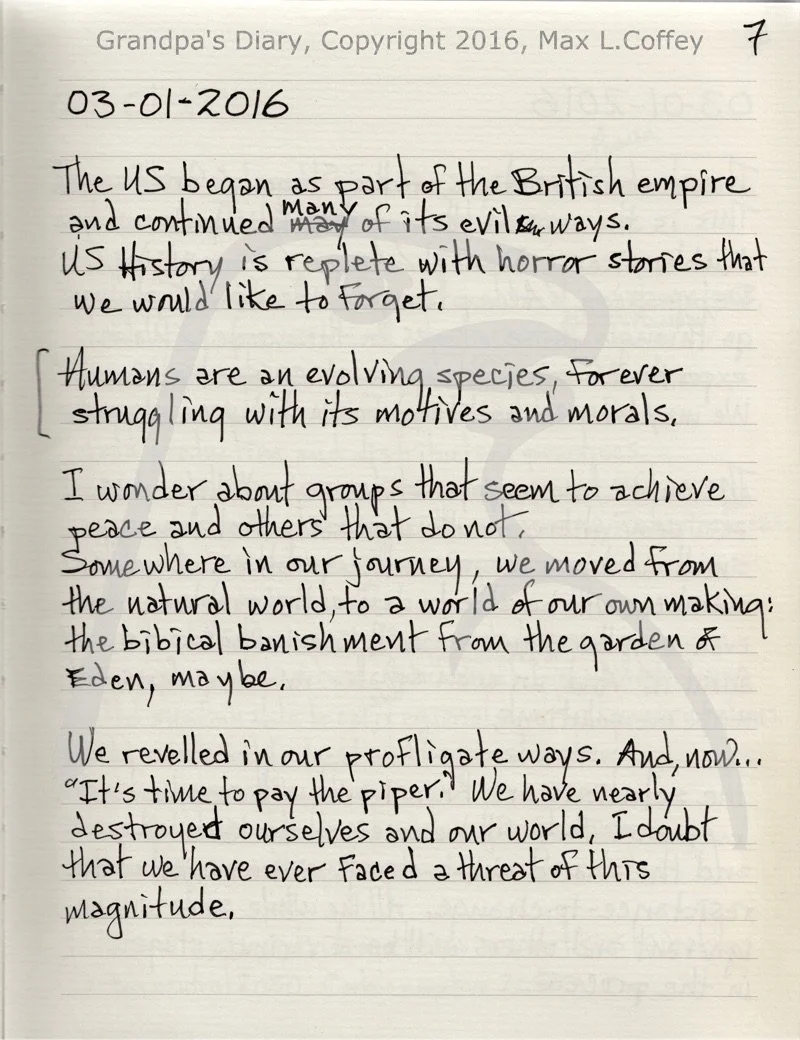 Grandpa's Diary, Copyright 2016, Max L.Coffey 7
03-01-2016
The US began as part of the British empire
many
and continued may of its evil ways.
US History is replete with horror stories that
we would like to forget.
Humans are an evolving species, forever
struggling with its motives and morals.
I wonder about groups that seem to achieve
peace and others that do not.
Somewhere in our journey, we moved from
the natural world, to a world of our own making:
the bibical banishment from the garden of
Eden, maybe.
We revelled in our profligate ways. And, now...
"It's time to pay the piper." We have nearly
destroyed ourselves and our world. I doubt
that we have ever faced a threat of this
magnitude.